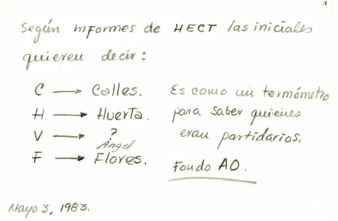 1
Según informes de HECT las iniciales
quieren decir:
C → Calles.
H → Huerta.
V → ?
Ángel
F → Flores.
Es como un termómetro
para saber quienes
eran partidarios.
Fondo AO.
Mayo 3, 1983.